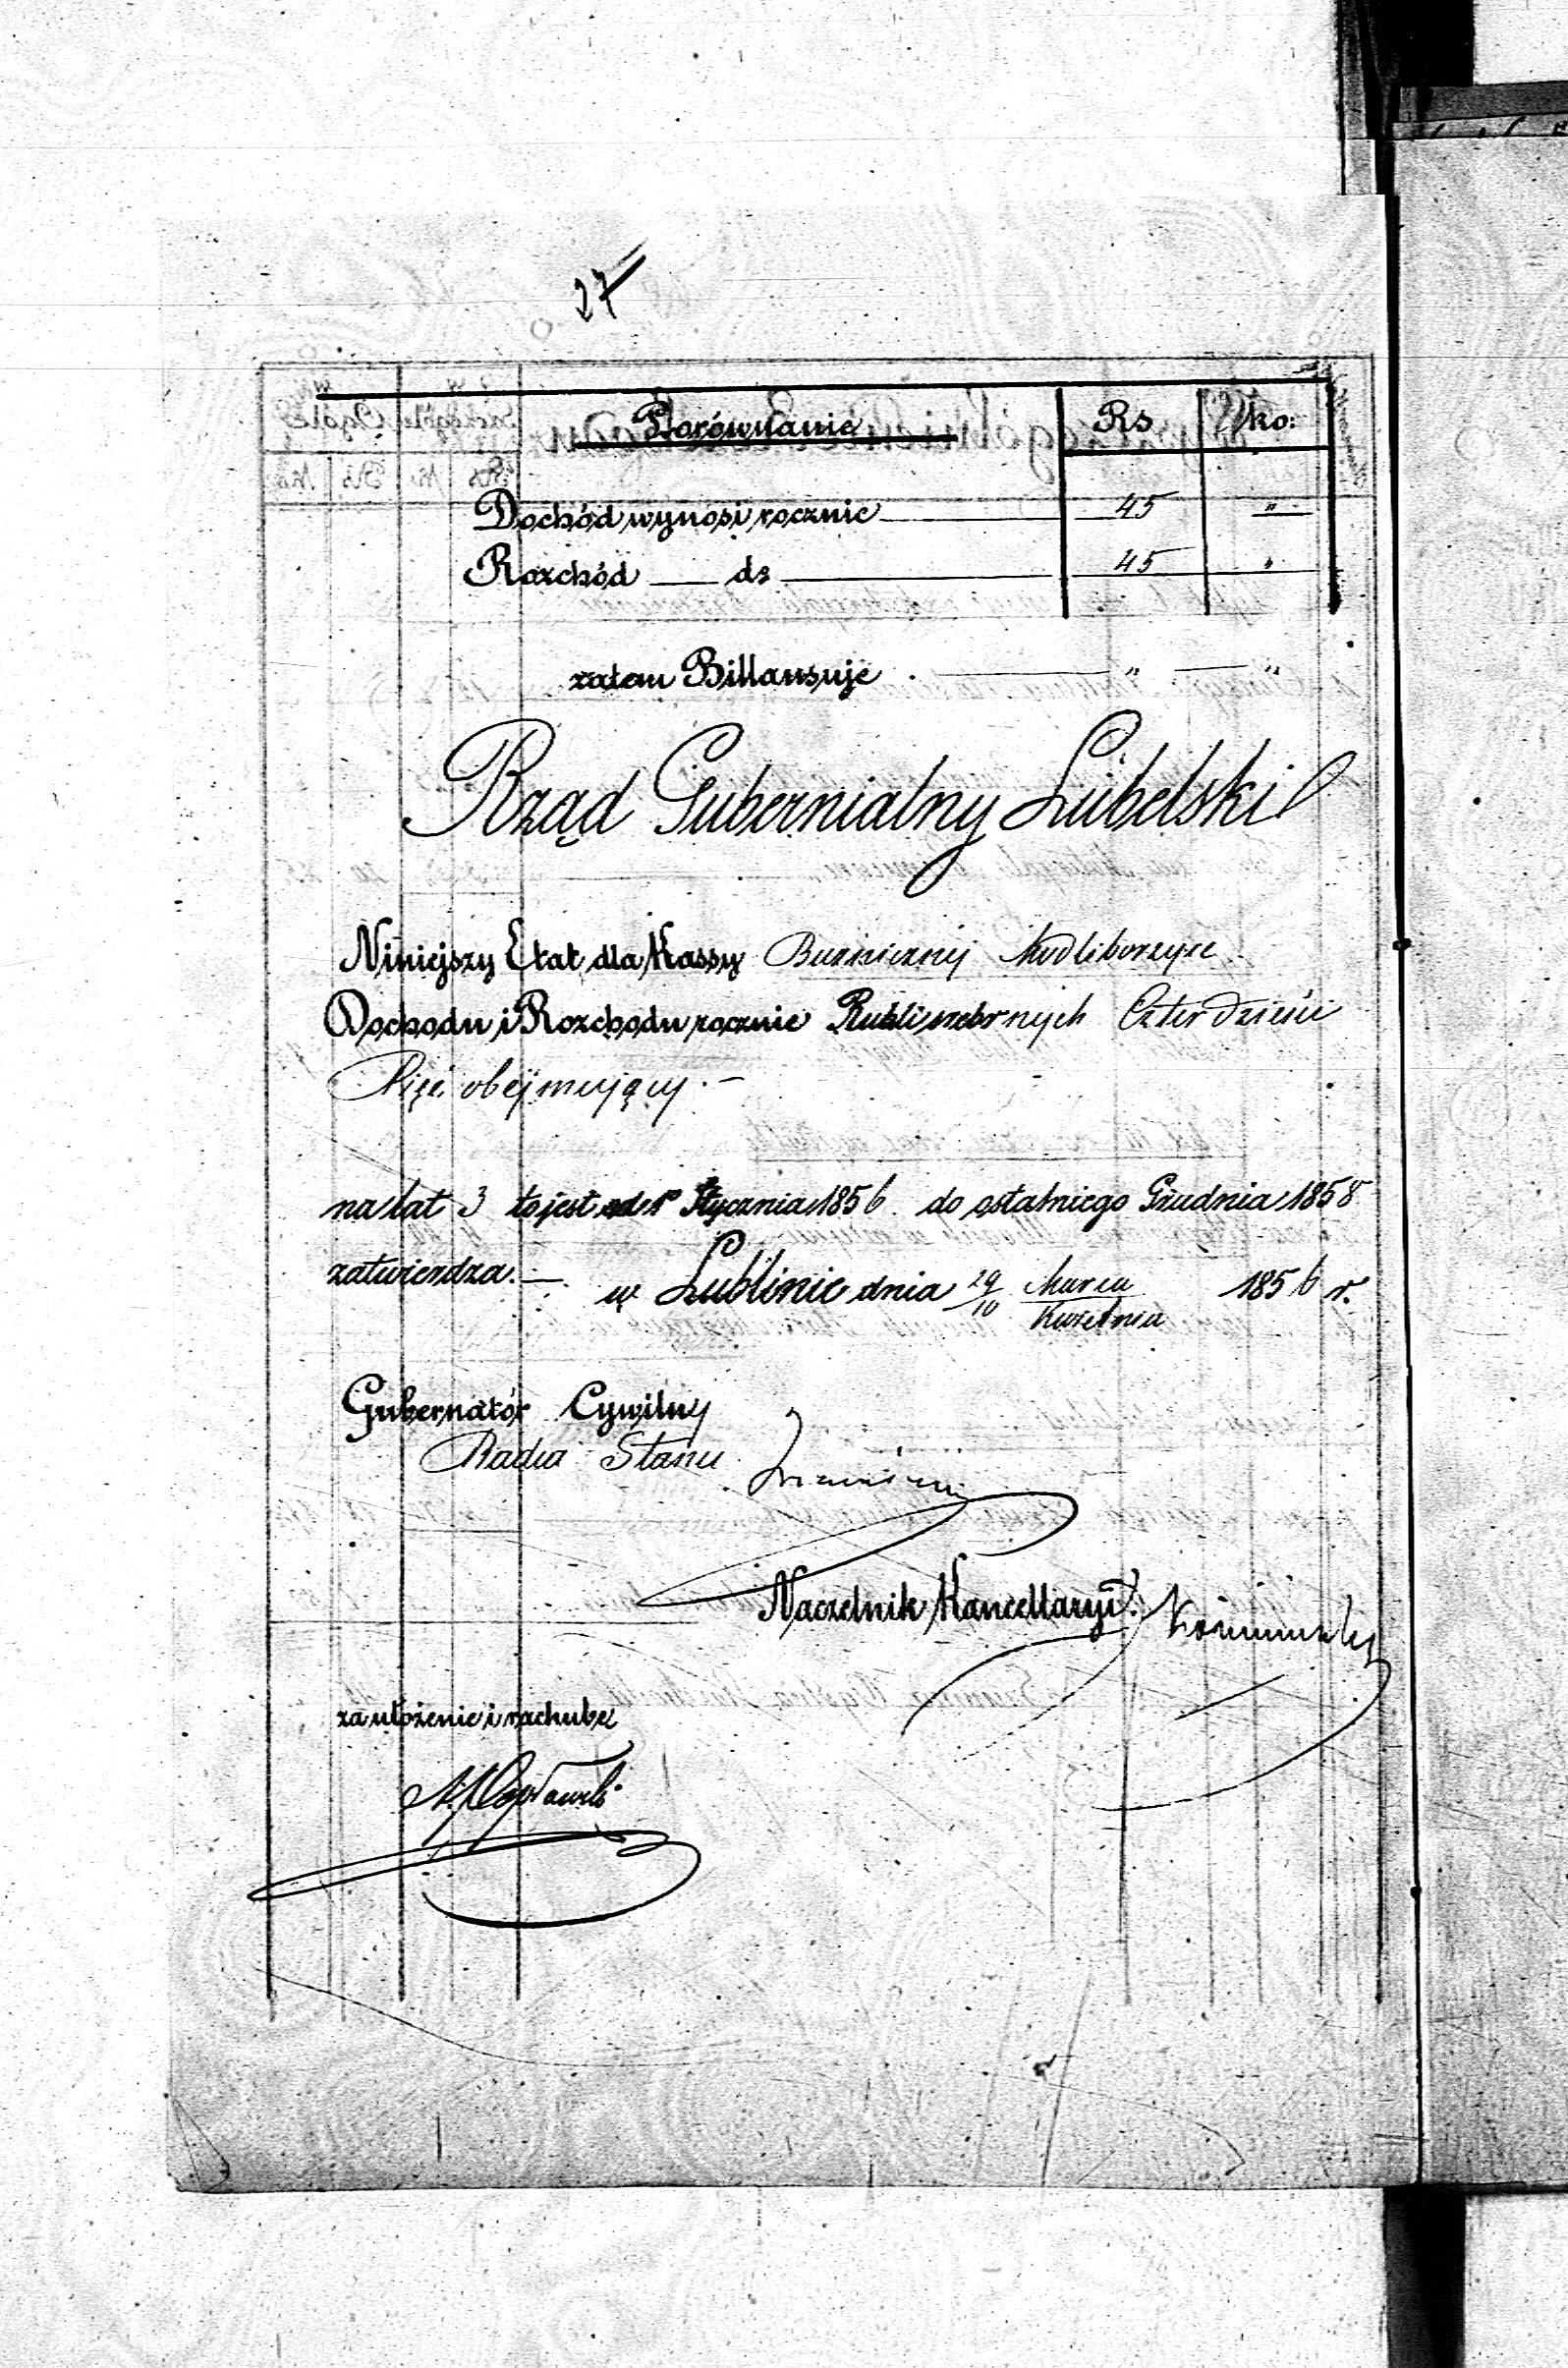 27
Porównanie Rs ko:
Dochód wynosi rocznie 45 "
Rozchód ds 45 "
zatem Billansuje . " "
Rząd Gubernialny Lubelski
Niniejszy Etat dla Kassy Buzniczney Modliborzyce
Dochodu i Rozchodu rocznie Rubli srebrnych Czterdzieści
Pięć obejmujący.—
na lat 3 to jest od 1o Stycznia 1856 do ostatniego Grudnia 1858
zatwierdza.—
w Lublinie dnia 29/10 Marca/Kwietnia 1856 r.
Gubernator Cywilny
Radca Stanu
Naczelnik Kancellaryi
za ułożenie i rachubę